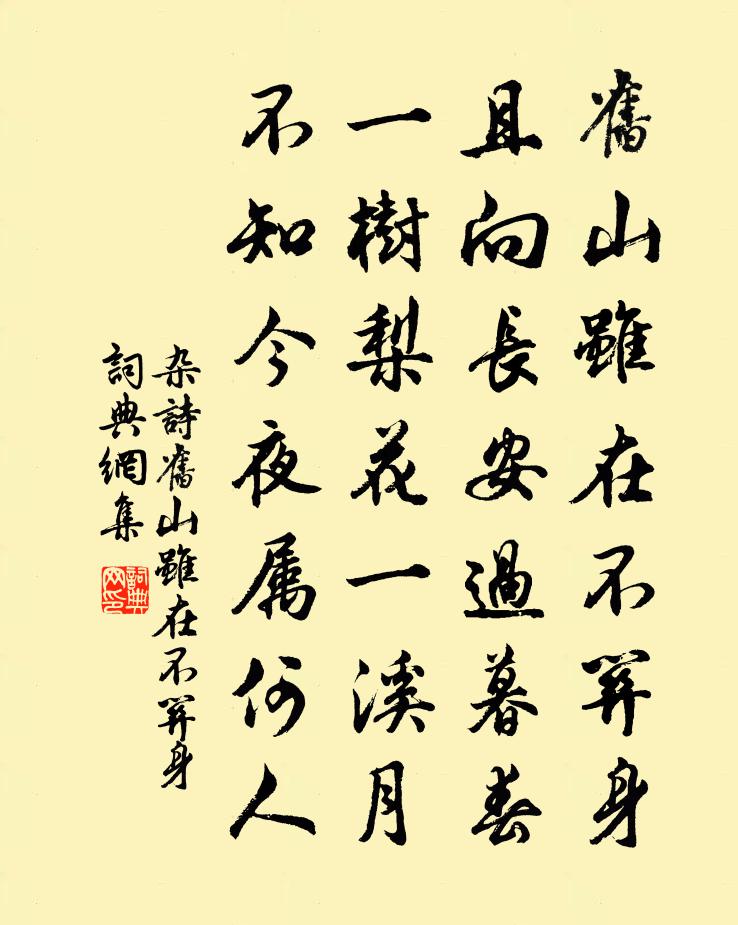 舊山雖在不關身
且向長安過暮春
一樹梨花一溪月
不知今夜属何人
杂詩舊山雖在不關身
詞典網集
詞典網印